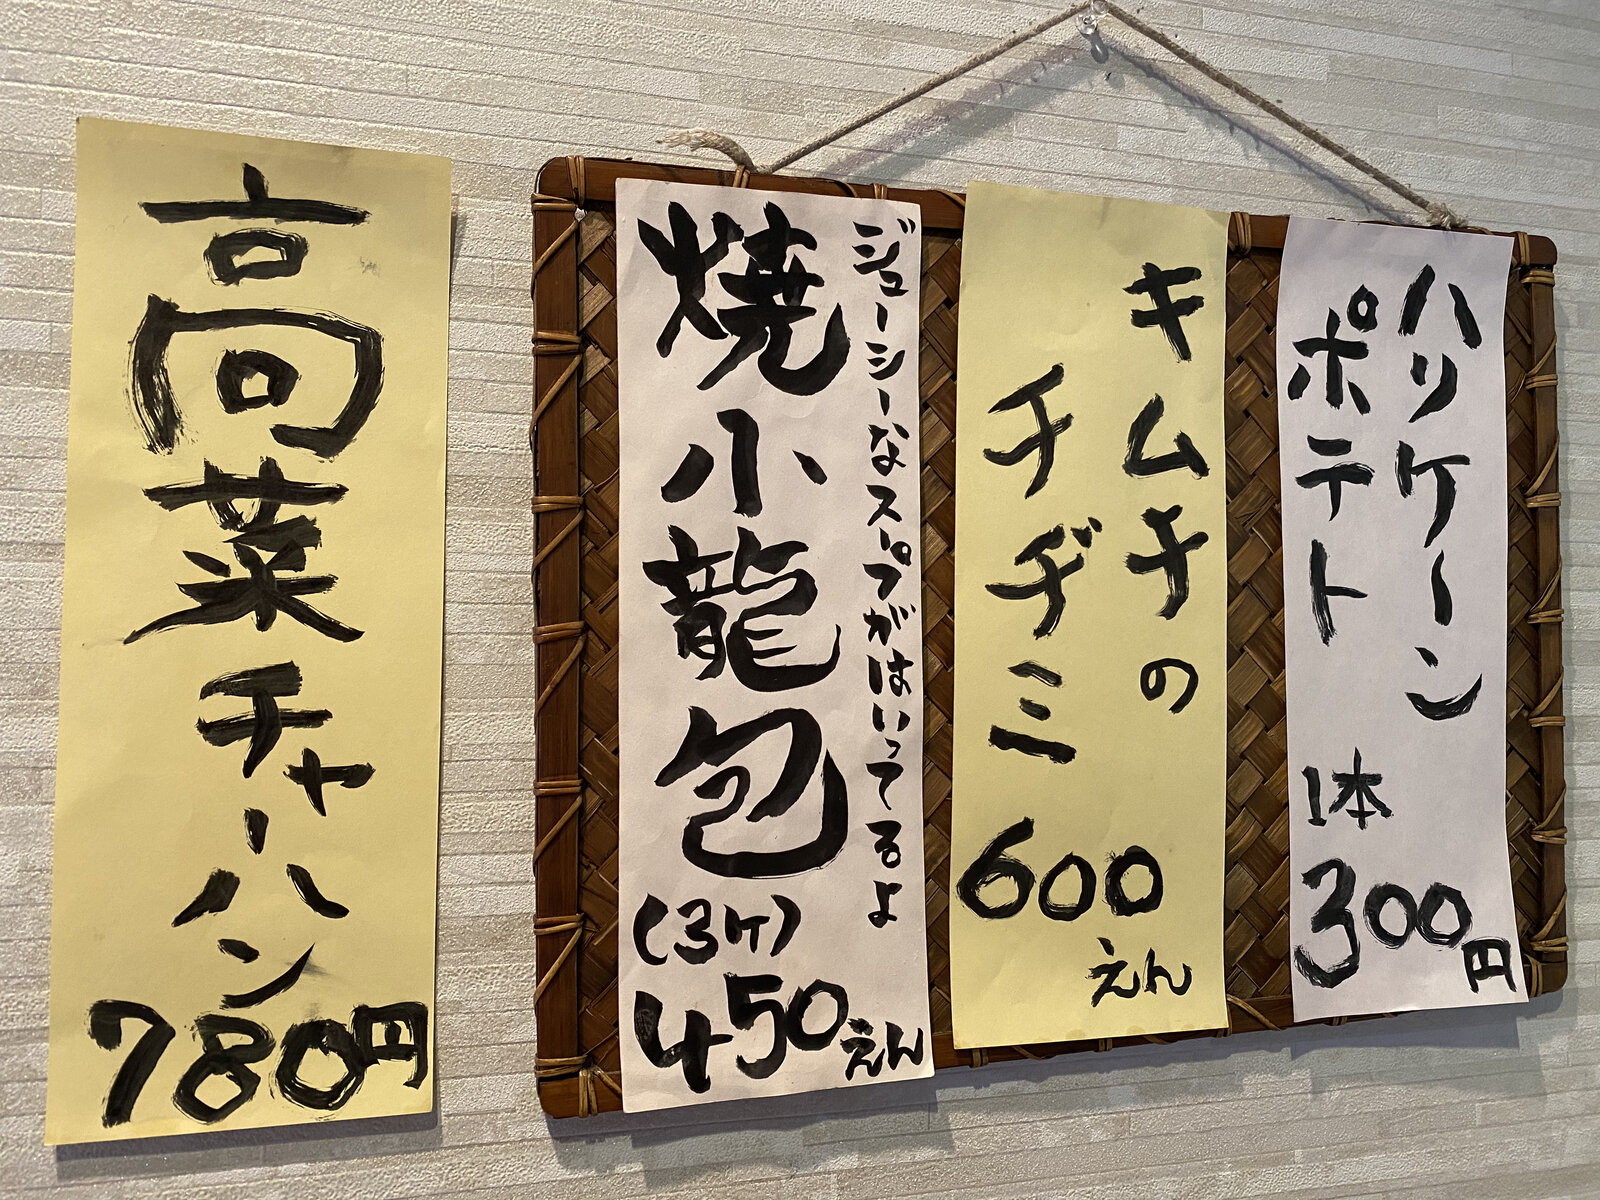 ハリケーン
ポテト
1本
300円
キムチの
チヂミ
600
えん
ジューシーなスープがはいってるよ
焼小龍包
(3ケ)
450えん
高菜チャーハン
780円